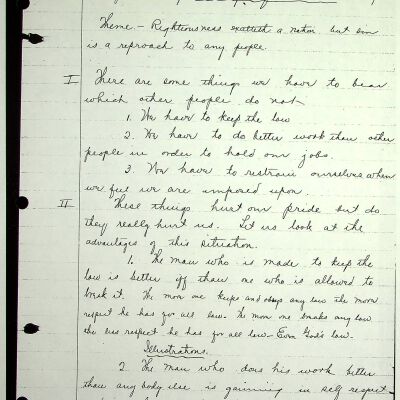 Theme. - Righteousness exalteth a nation but sin
is a reproach to any people.
I There are some things we have to bear
which other people do not
1. We have to keep the law
2. We have to do better work than other
people in order to hold our jobs.
3. We have to restrain ourselves when
we feel we are imposed upon.
II These things hurt our pride but do
they really hurt us. Let us look at the
advantages of this situation.
1. The man who is made to keep the
law is better off than one who is allowed to
break it. The more one keeps and obeys any law the more
respect he has for all law. The more one breaks any law
the less respect he has for all law - Even God's law.
Illustrations.
2. The man who does his work better
than any body else is gaining in self respect